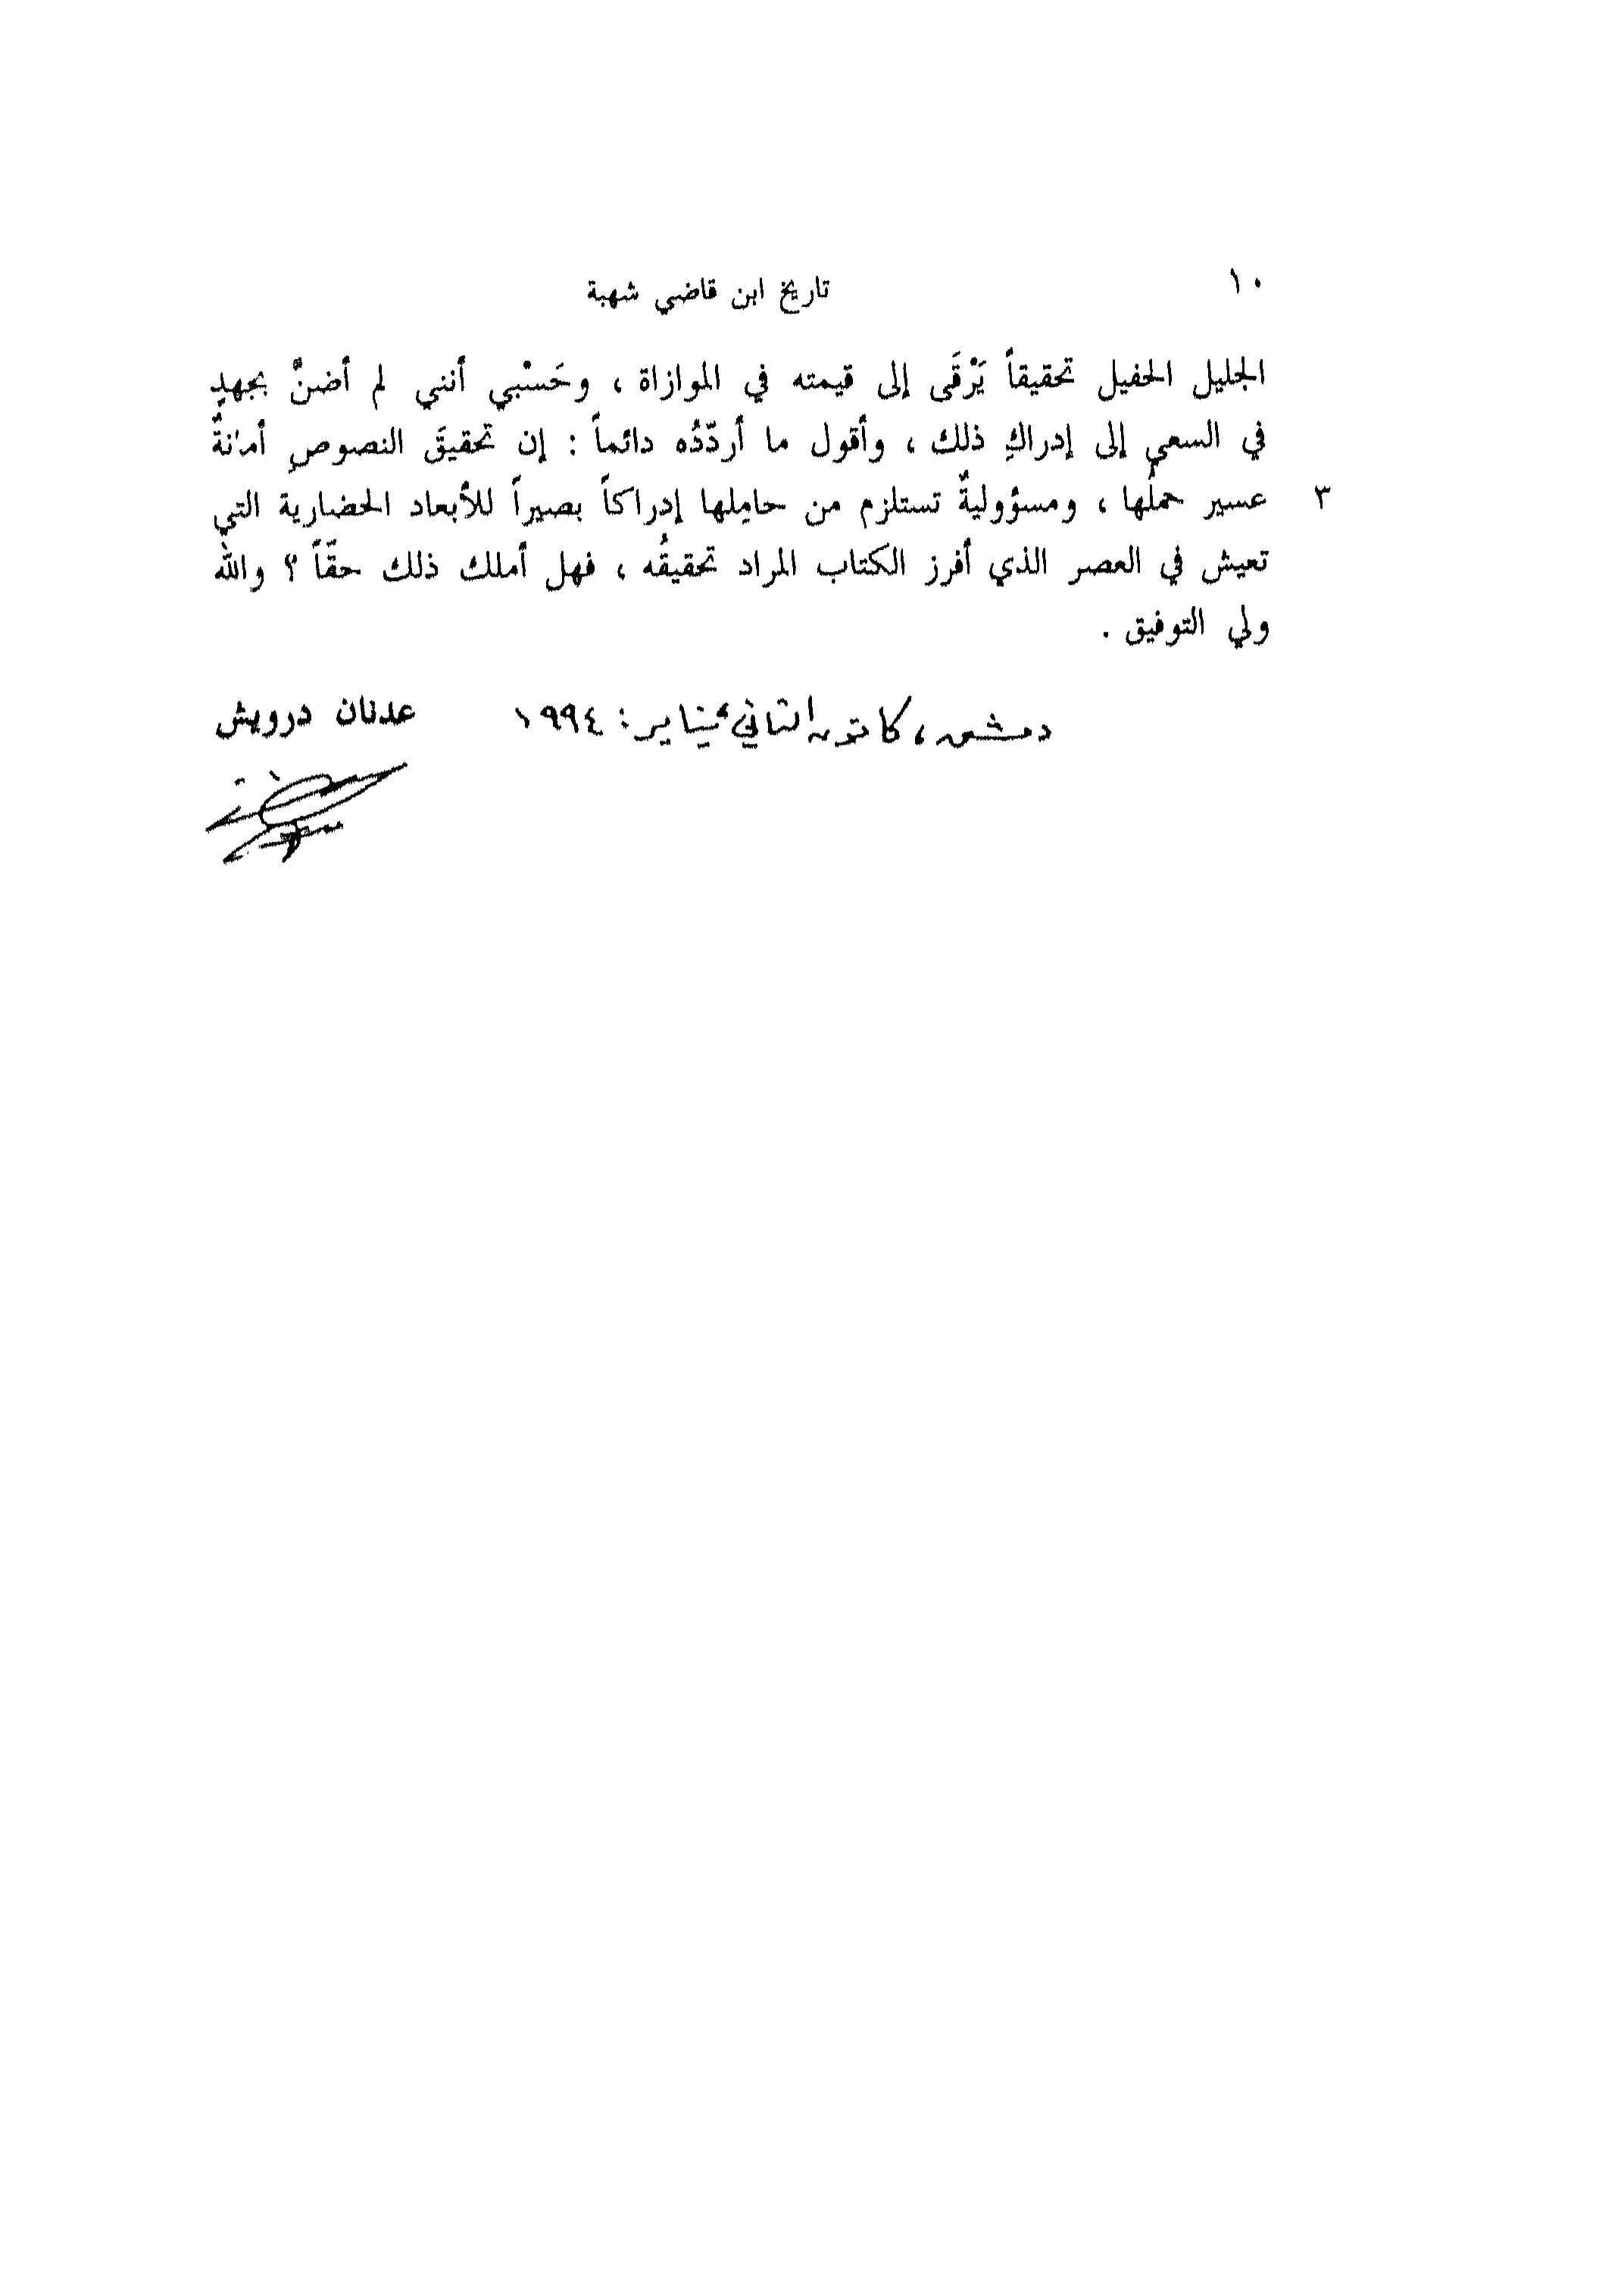 ١٠
تاريخ ابن قاضي شهبة
الجليل الحفيل تحقيقاً يَرْقَى إلى قيمته في الموازاة ، وحَسْبي أنني لم أضنَّ بجهدٍ
في السعي إلى إدراكِ ذلك ، وأقول ما أردّدُه دائماً : إن تحقيقَ النصوصِ أمانةٌ
٣ عسير حملُها ، ومسؤوليةٌ تستلزم من حامِلها إدراكاً بصيراً للأبعاد الحضارية التي
تعيش في العصر الذي أفرز الكتاب المراد تحقيقُه ، فهل أملك ذلك حقّاً ؟ والله
ولي التوفيق .
دمشق ، كانون الثاني يناير : ١٩٩٤ عدنان درويش